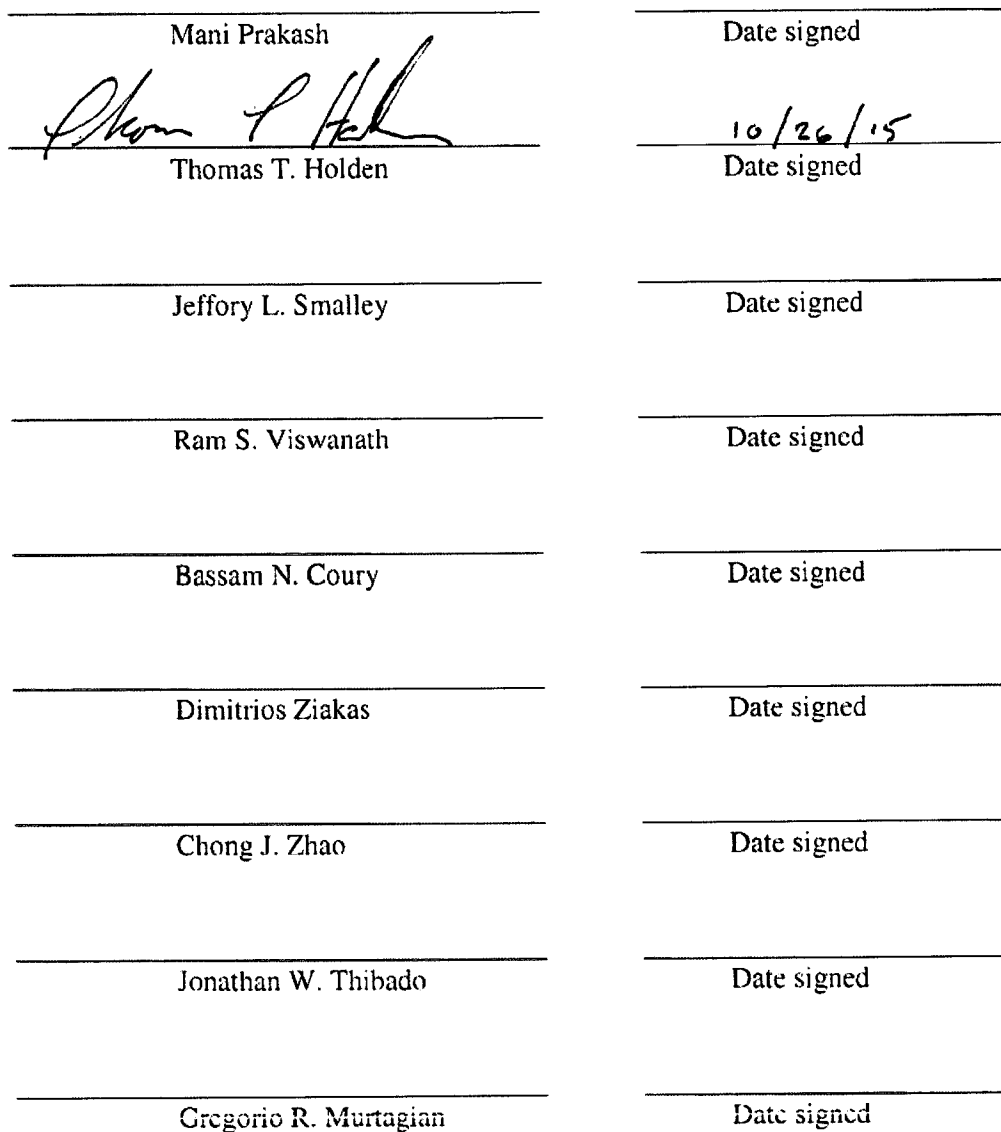 Mani Prakash Date signed
Thomas T. Holden 10/26/15
Thomas T. Holden Date signed
Jeffory L. Smalley Date signed
Ram S. Viswanath Date signed
Bassam N. Coury Date signed
Dimitrios Ziakas Date signed
Chong J. Zhao Date signed
Jonathan W. Thibado Date signed
Gregorio R. Murtagian Date signed